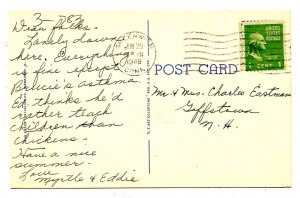 Dear folks -
Lovely down
here. Everything
is fine except
Brucie's asthma.
Ed. thinks he'd
rather teach
children than
chickens.
Have a nice
summer.
Love
Myrtle & Eddie
JUN 29
1948
CONN
POST CARD
1 CENT 1
Mr & Mrs. Charles Eastman
N.H.